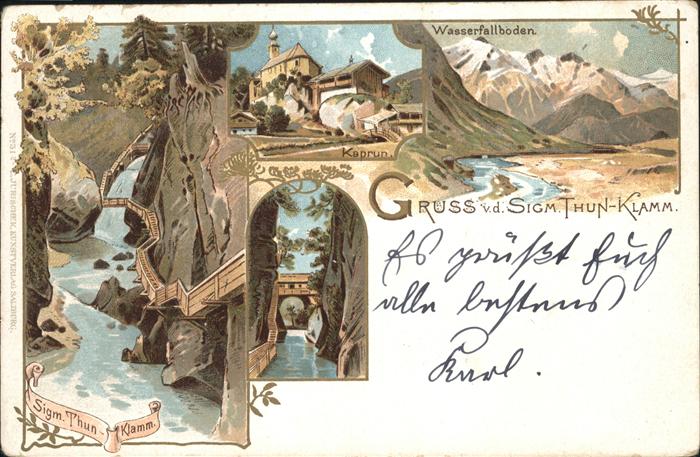 Wasserfallboden.
Kaprun.
GRUSS v.d. SIGM. THUN-KLAMM.
Es grüßt Euch
alle bestens
Karl.
Sigm. Thun-
Klamm.
JURISCHEK, KUNSTVERLAG SALZBURG.